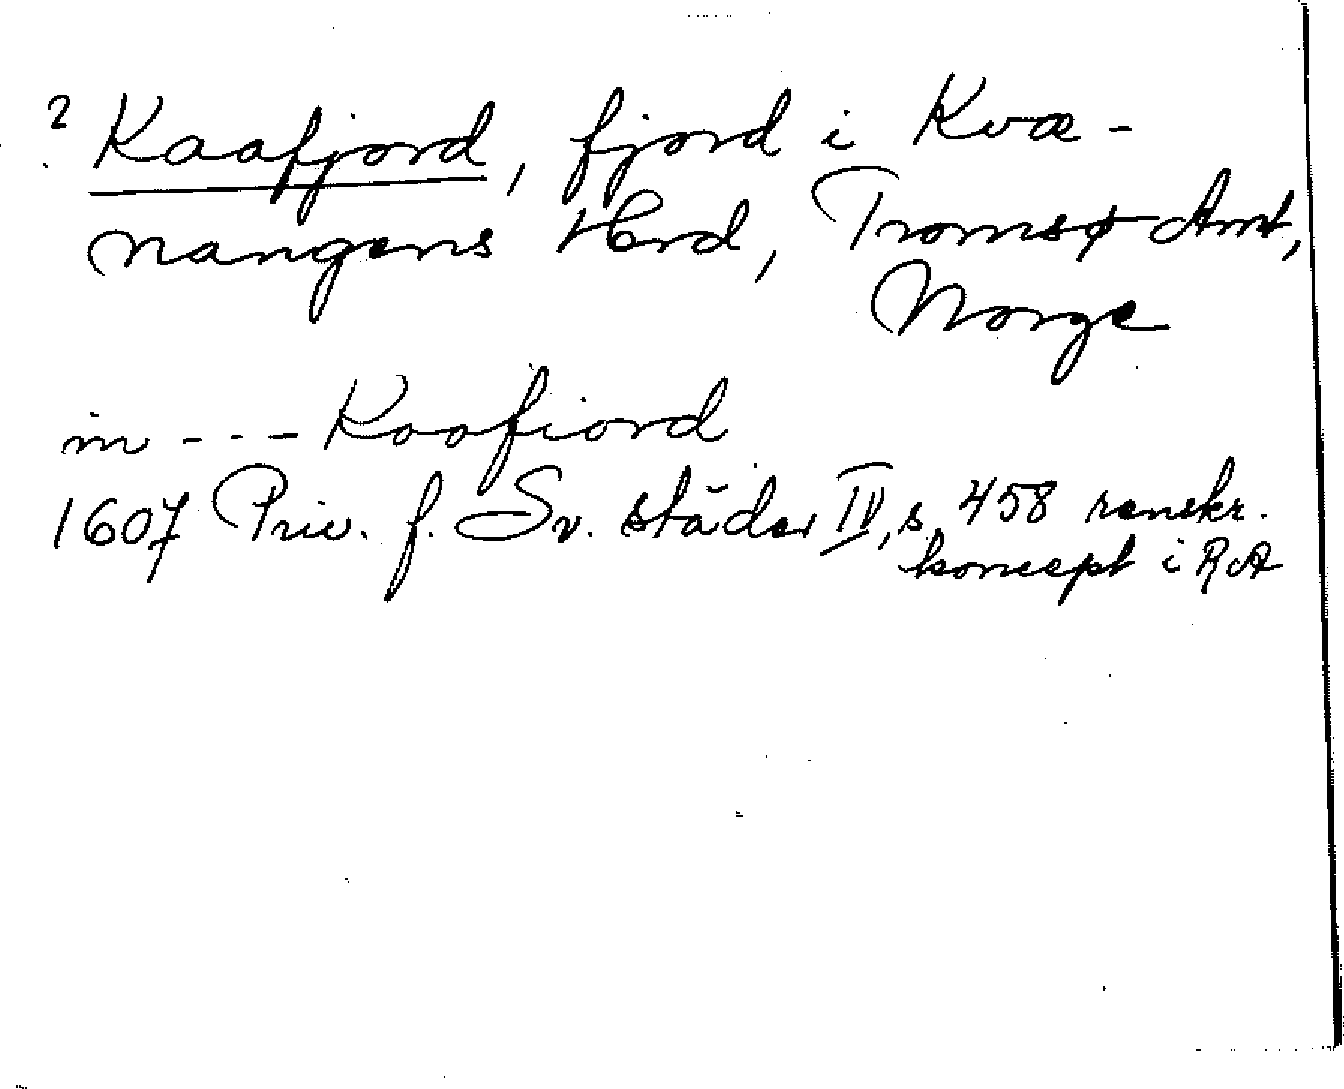 ? Kaafjord, fjord i Kvæ-
nangens Hrd, Tromsø Amt,
Norge
in - - - Kaafiord
1607 Priv. f. Sv. städer IV, s. 458 renskr.
koncept i RA